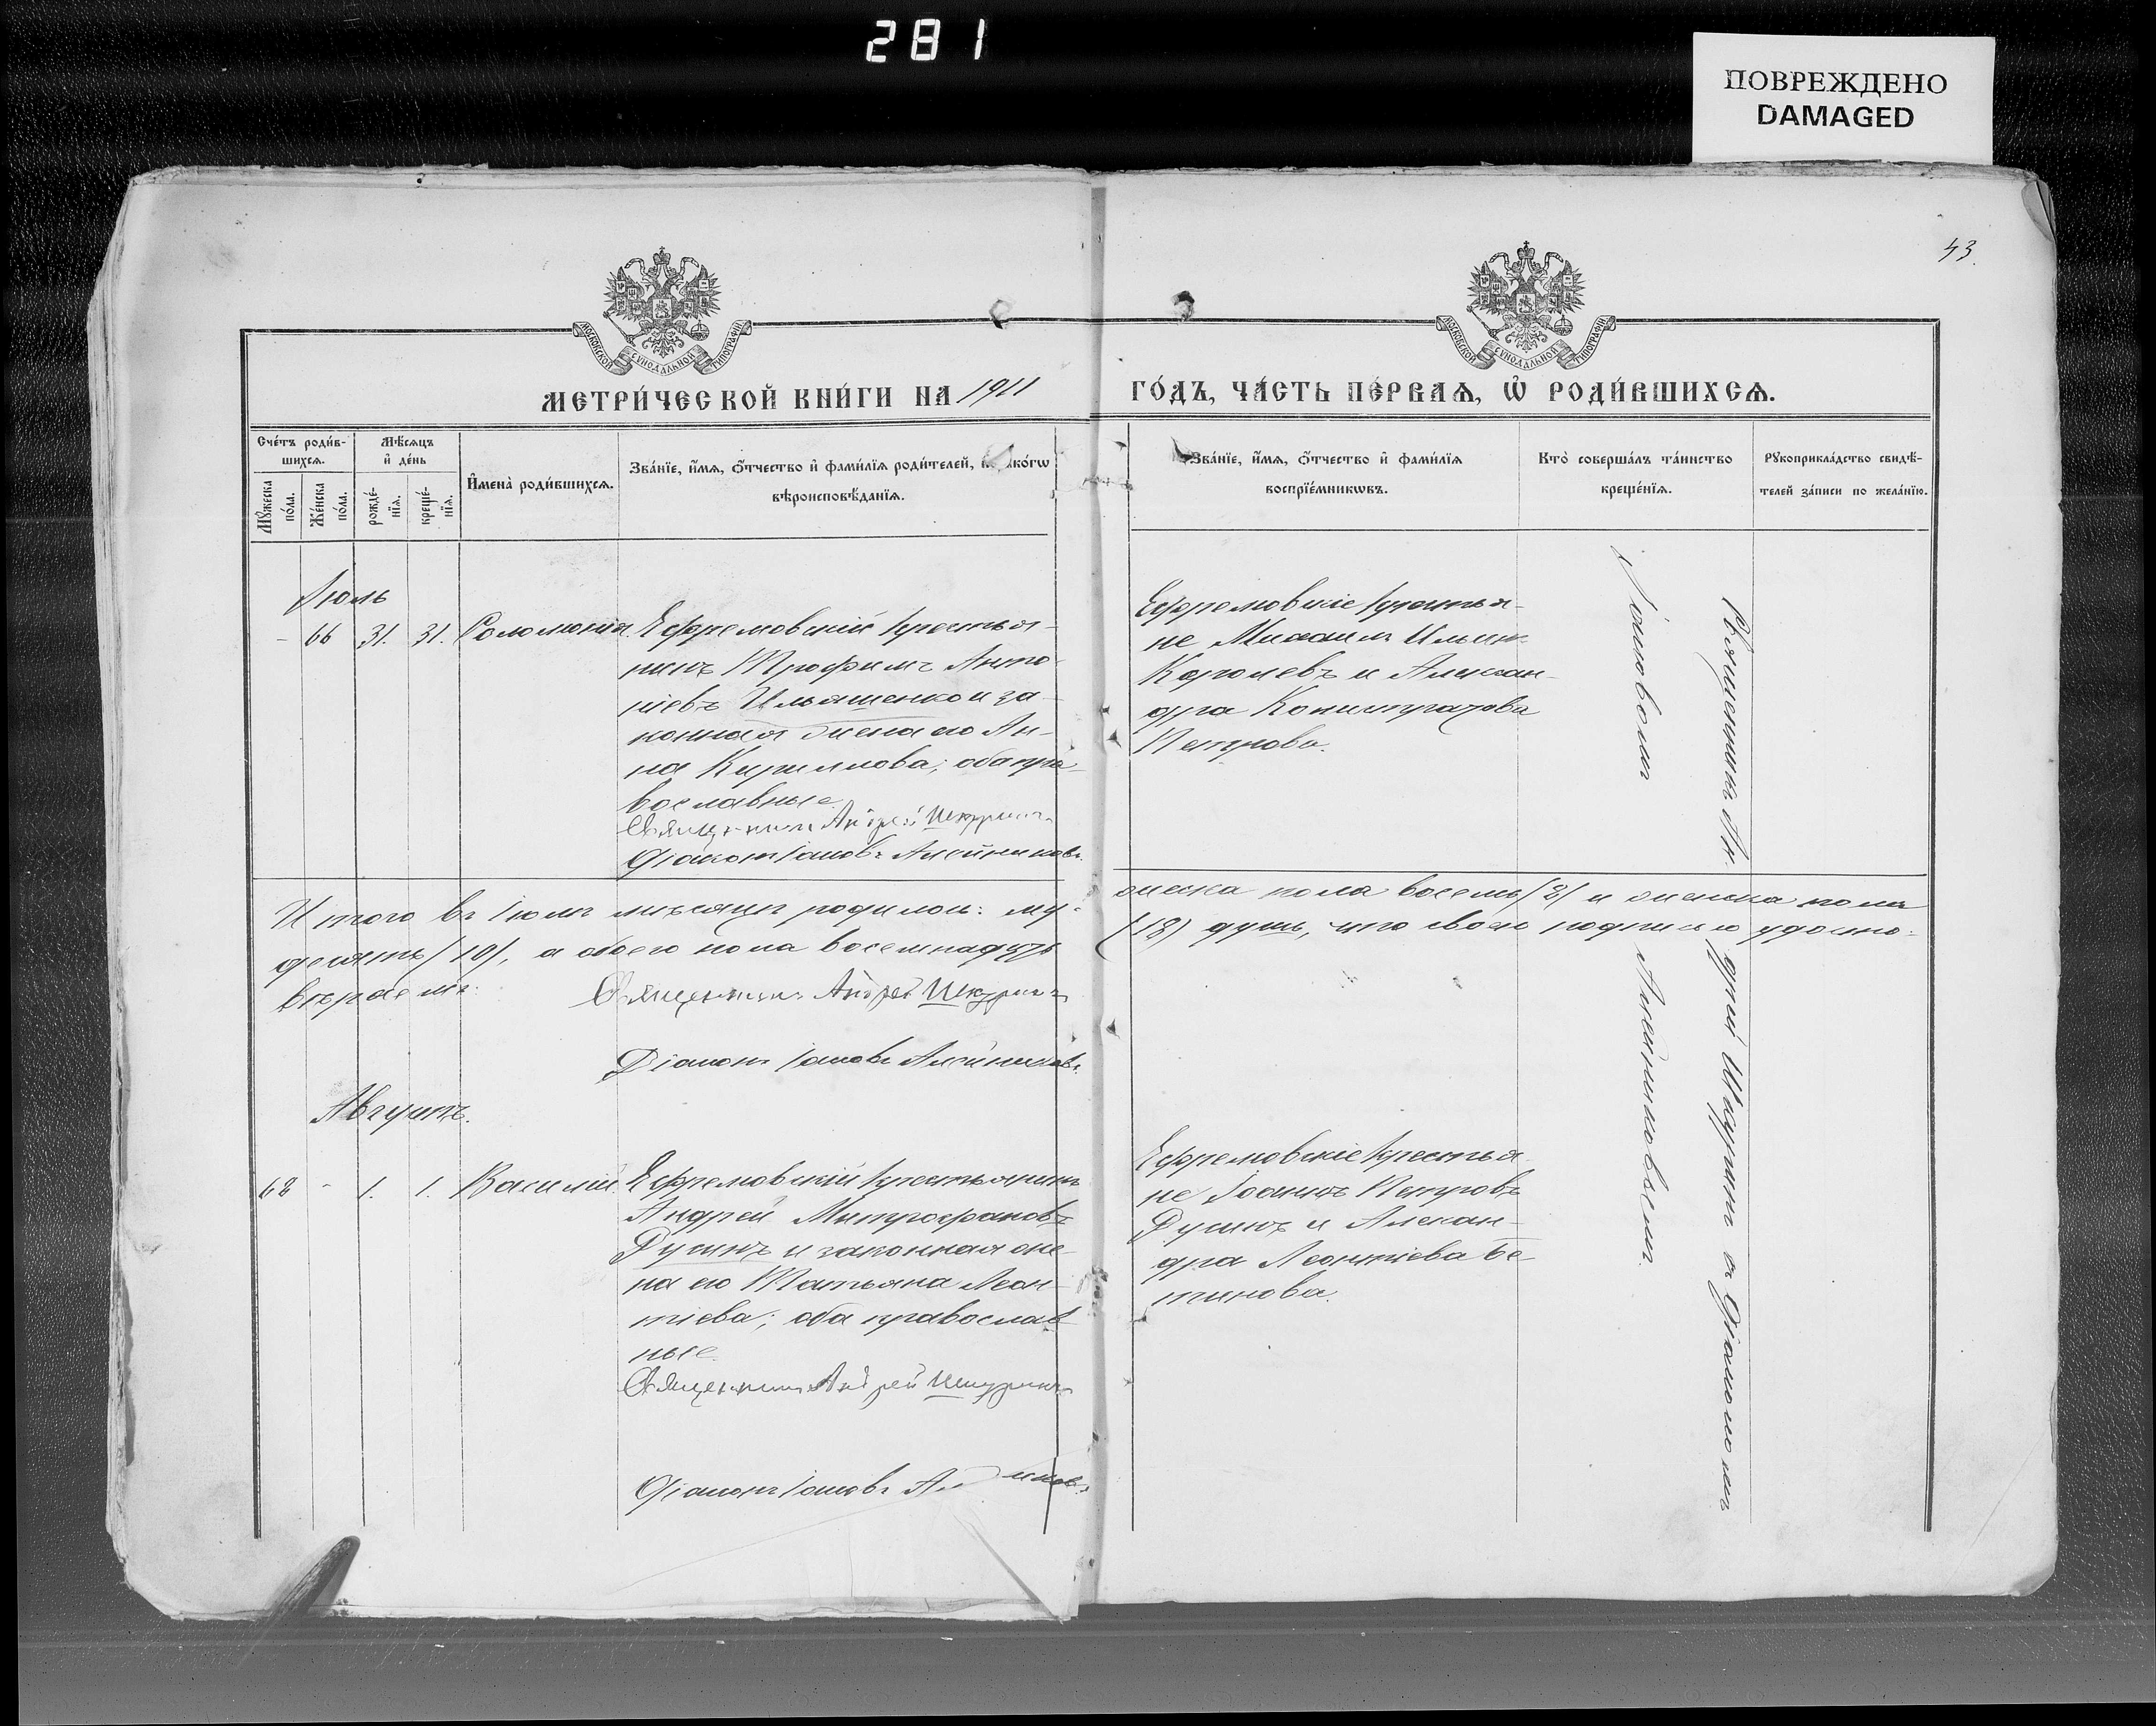 281
ПОВРЕЖДЕНО
DAMAGED
43.
МОСКОВСКОЙ СУНОДАЛЬНОЙ ТИПОГРАФІИ
МОСКОВСКОЙ СУНОДАЛЬНОЙ ТИПОГРАФІИ
МЕТРИ́ЧЕСКОЙ КНИ́ГИ НА 1911
ГО́ДЪ, ЧА́СТЬ ПЕ́РВАѦ, Ѡ҆ РОДИ́ВШИХСѦ.
Сче́тъ роди́в-
шихсѧ.
Мѣ́сѧцъ
и҆ де́нь
Мꙋ́жеска по́ла.
Же́нска по́ла.
рожде́-нїѧ.
креще́-нїѧ.
И҆мена̀ роди́вшихсѧ.
Зва́нїе, и҆́мѧ, ѻ҆́тчество и҆ фами́лїѧ роди́телей, и҆ како́гѡ
вѣроисповѣ́данїѧ.
Зва́нїе, и҆́мѧ, ѻ҆́тчество и҆ фами́лїѧ
воспрїе́мникѡвъ.
Кто̀ соверша́лъ та́инство
креще́нїѧ.
Рꙋкоприкла́дство свидѣ́-
телей за́писи по жела́нїю.
Іюль
- 66 31. 31. Соломонія
Ефремовскій крестья-
нинъ Трофимъ Анто-
ніевъ Ильяшенко и за-
конная жена его Ан-
на Кириллова; оба пра-
вославные.
Священникъ Андрей Шкуринъ
Діаконъ Іаковъ Алейниковъ.
Ефремовскіе крестья-
не Михаилъ Ильинъ
Королевъ и Алексан-
дра
Петрова.
Священникъ Ан-
дрей Шкуринъ съ діакономъ
Іаковомъ
Алейниковымъ.
Итого въ Іюлѣ мѣсяцѣ родилось: му-
жеска пола восемь /8/ и женска пола
десять /10/, а обоего пола восемнадцать
(18) душъ, что своею подписью удосто-
вѣряемъ.
Священникъ Андрей Шкуринъ
Діаконъ Іаковъ Алейниковъ.
Августъ.
68 - 1. 1. Василій
Ефремовскій крестьянинъ
Андрей Митрофановъ
Дусинъ и законная же-
на его Татьяна Леон-
тіева; оба православ-
ные.
Священникъ Андрей Шкуринъ
Діаконъ Іаковъ
Ефремовскіе крестья-
не Іоаннъ Петровъ
Дусинъ и Алексан-
дра Леонтіева